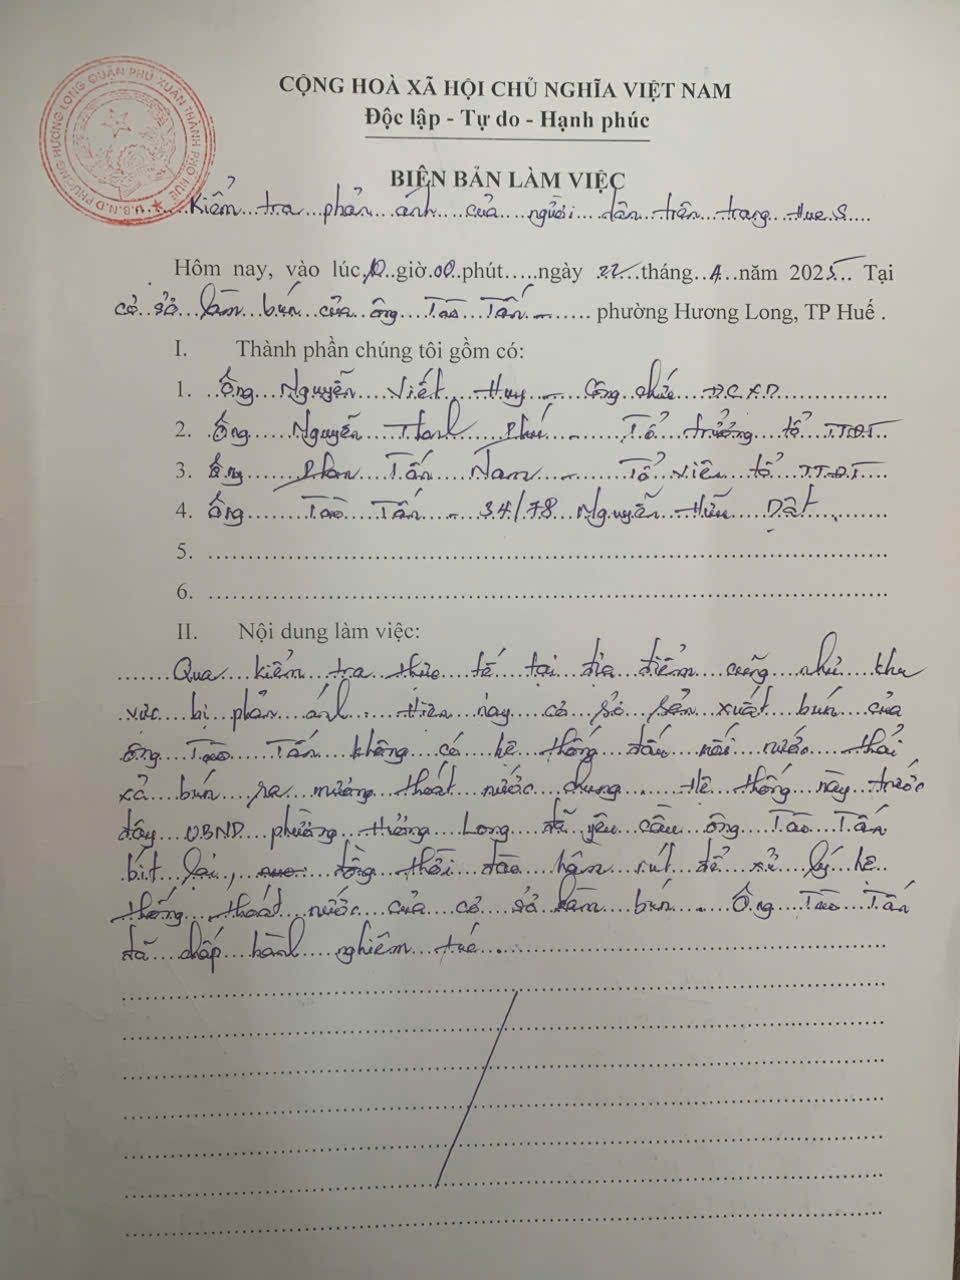 U.B.N.D PHƯỜNG HƯƠNG LONG QUẬN PHÚ XUÂN THÀNH PHỐ HUẾ
CỘNG HOÀ XÃ HỘI CHỦ NGHĨA VIỆT NAM
Độc lập - Tự do - Hạnh phúc
BIÊN BẢN LÀM VIỆC
Kiểm tra phản ánh của người dân trên trang Hue.S
Hôm nay, vào lúc 10 giờ 00 phút.....ngày 22 tháng 4 năm 2025 Tại
cơ sở làm bún của ông Tào Tấn - phường Hương Long, TP Huế .
I. Thành phần chúng tôi gồm có:
1. Ông Nguyễn Viết Huy - Công chức ĐC.XD
2. Ông Nguyễn Thanh Phú - Tổ trưởng tổ TTĐT
3. Ông Phan Tấn Nam - Tổ viên tổ TTĐT
4. Ông Tào Tấn - 34/78 Nguyễn Hữu Dật
5.
6.
II. Nội dung làm việc:
Qua kiểm tra thực tế tại địa điểm cũng như khu
vực bị phản ánh. Hiện nay cơ sở sản xuất bún của
ông Tào Tấn không có hệ thống đấu nối nước thải
xả bún ra mương thoát nước chung. Hệ thống này trước
đây UBND phường Hương Long đã yêu cầu ông Tào Tấn
bít lại, đồng thời đào hầm rút để xử lý hệ
thống thoát nước của cơ sở làm bún. Ông Tào Tấn
đã chấp hành nghiêm túc.